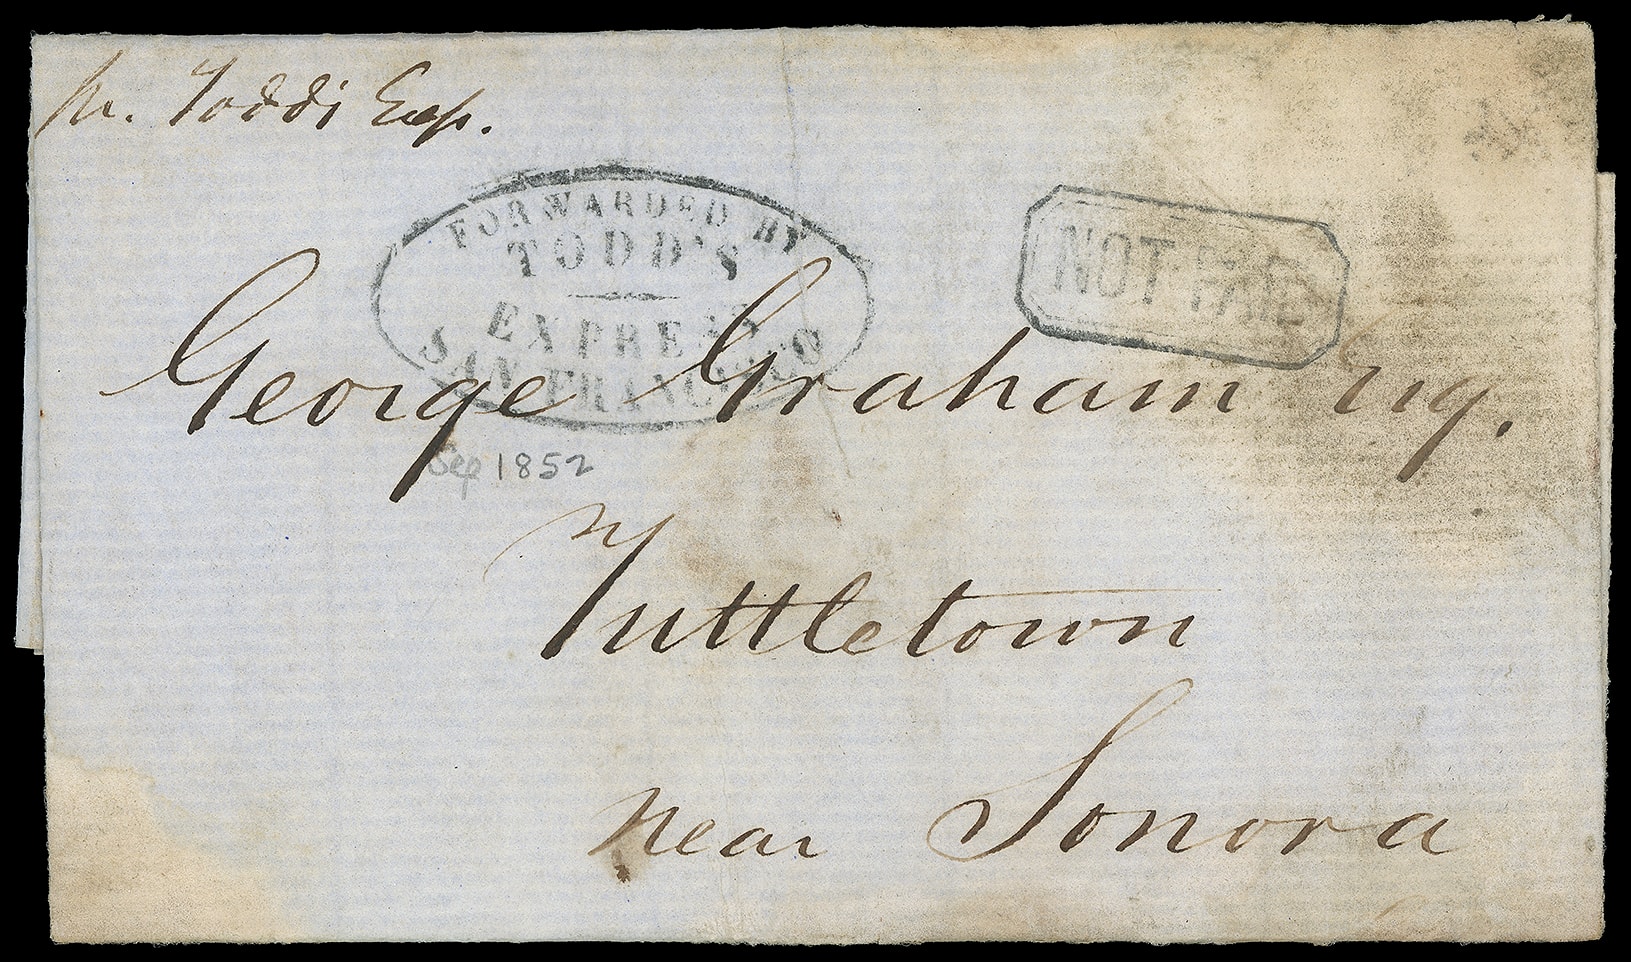 pr. Todds Exp.
FORWARDED BY
TODD'S
EXPRESS
SAN FRANCISCO
NOT PAID
George Graham Esq.
Sep 1852
Tuttletown
near Sonora